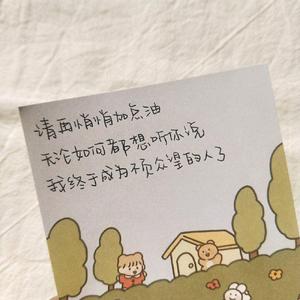 请再悄悄加点油
无论如何都想听你说
我终于成为不负众望的人了